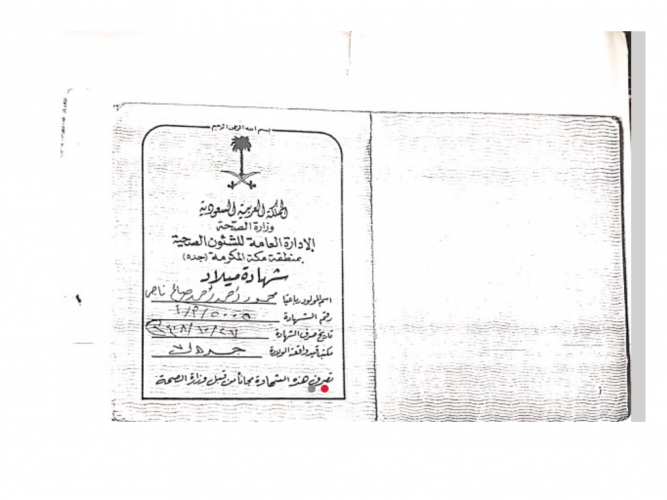 بسم الله الرحمن الرحيم
المملكة العربية السعودية
وزارة الصحة
الإدارة العامة للشئون الصحية
بمنطقة مكة المكرمة (جدة)
شهادة ميلاد
اسم المولود رباعيا محمود أحمد أحمد صالح ناجي
رقم الشهادة
تاريخ صرف الشهادة
مكتب قيد واقعة الولادة جدة
تصرف هذه الشهادة مجانا من قبل وزارة الصحة